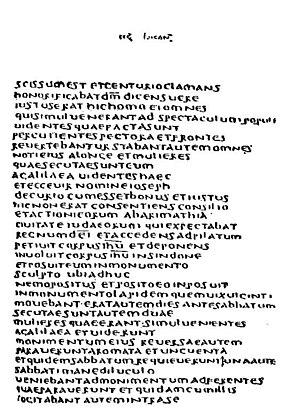 sec lucan
scissumest etcenturioclamans
honorificabatdm̅ dicensuere
iustuserat hichomo etomnes
quisimul uenerantad spectaculum populi
uidentes quaefactasunt
percutientes pectora etfrontes
reuertebantur stabantautemomnes
notieius alonge etmulieres
quaesecutaesunteum
agalilaea uidentes haec
etecceuir nomineioseph
decurio cumessetbonus etiustus
hicnonerat consentiens consilio
etactionieorum abarimathia
ciuitate iudaeorum quiexpectabat
regnumdei̅ etaccedens adpilatum
petiuit corpusihu̅ etdeponens
inuoluitcorpusihu̅ insindone
etposuiteum inmonumento
sculpto ubiadhuc
nemopositus etpositoeo inposuit
inmonumentolapidem quemuixuiginti
mouebant eratautemdies antesabbatum
secutaesuntautem duae
mulieres quaeerantsimuluenientes
agalilaea etuiderunt
monumentum eius reuersaeautem
parauerunt aromata etunguenta
etquidemsabbatum requieuerunt
sabbati manediluculo
ueniebantadmonumentum adferentes
quaeparauerunt etquidamcumillis
cogitabant autemintrase